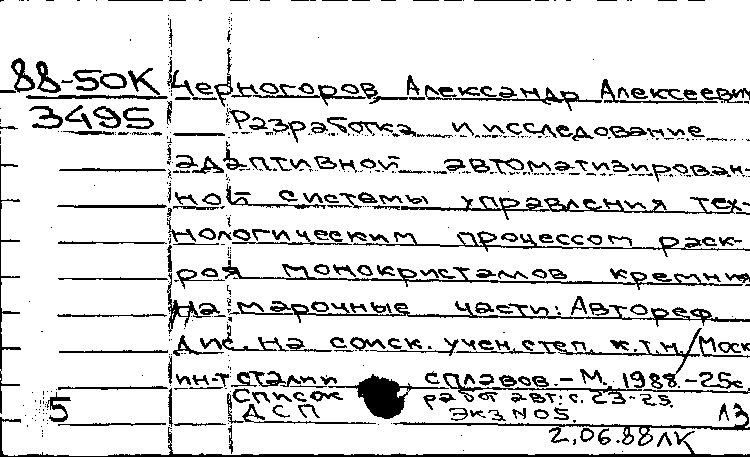 88-50К Черногоров, Александр Алексеевич
3495 Разработка и исследование
адаптивной автоматизирован-
ной системы управления тех-
нологическим процессом раск-
роя монокристаллов кремния
на марочные части: Автореф.
дис. на соиск. учен. степ. к.т.н. / Моск
ин-т стали и сплавов. - М. 1988. - 25с.
Список работ авт.: с. 23-25.
5 ДСП Экз N05. 13
2.06.88 ЛК